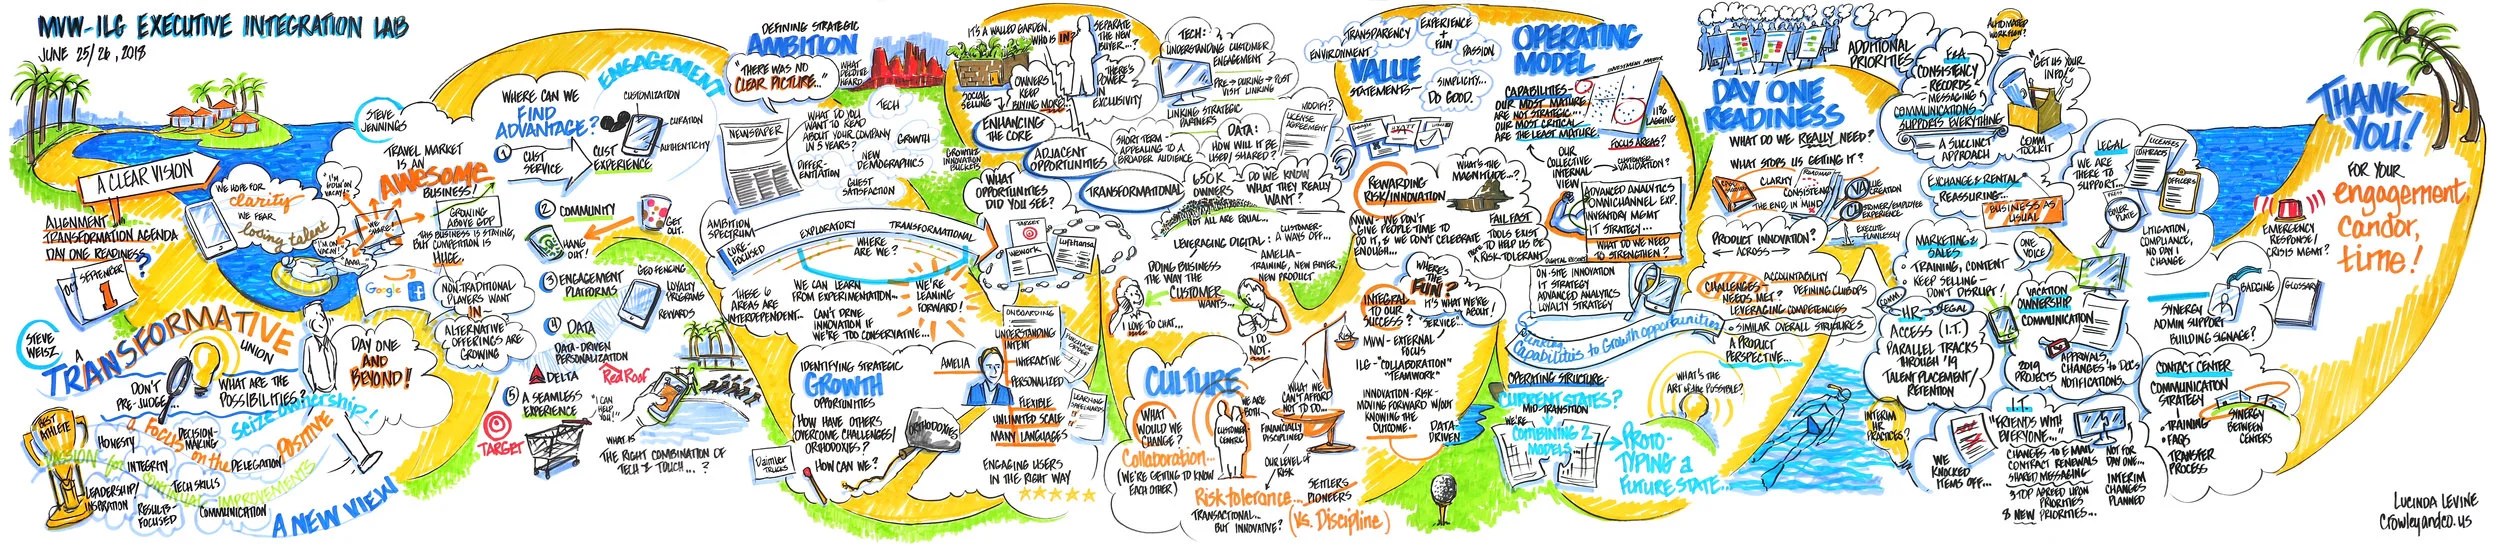 MVW-ILG EXECUTIVE INTEGRATION LAB
JUNE 25/26, 2018
A CLEAR VISION
ALIGNMENT
TRANSFORMATION AGENDA
DAY ONE READINESS?
SEPTEMBER
OCT
1
STEVE
WEISZ
A
TRANSFORMATIVE
UNION
DON'T
PRE-JUDGE...
WHAT ARE THE
POSSIBILITIES?
seize ownership!
a Focus
on the
POSITIVE
BEST
ATHLETE
HONESTY
DECISION-
MAKING
INTEGRITY
DELEGATION
TECH SKILLS
LEADERSHIP/
INSPIRATION
RESULTS-
FOCUSED
COMMUNICATION
PASSION for
IMPROVEMENTS
A NEW VIEW
DAY ONE
AND
BEYOND!
WE HOPE FOR
clarity
WE FEAR
losing talent
STEVE
JENNINGS
TRAVEL MARKET
IS AN
AWESOME
BUSINESS!
"I'M
GOIN' ON
VACAY!"
WE
SHARE!
"I'M ON
VACAY!"
AAAH...
GROWING
ABOVE GDP
THIS BUSINESS IS STAYING,
BUT COMPETITION IS
HUGE.
Google
f
NON-TRADITIONAL
PLAYERS WANT
IN
ALTERNATIVE
OFFERINGS ARE
GROWING
ENGAGEMENT
WHERE CAN WE
FIND
ADVANTAGE?
CUSTOMIZATION
CURATION
AUTHENTICITY
1
CUST
SERVICE
CUST
EXPERIENCE
2 COMMUNITY
GET
OUT.
HANG
OUT!
3 ENGAGEMENT
PLATFORMS
GEO FENCING
LOYALTY
PROGRAMS
REWARDS
4 DATA
DATA-DRIVEN
PERSONALIZATION
DELTA
Red Roof
5 A SEAMLESS
EXPERIENCE
"I CAN
HELP
YOU!"
TARGET
WHAT IS
THE RIGHT COMBINATION OF
TECH & TOUCH...?
DEFINING STRATEGIC
AMBITION
"THERE WAS NO
CLEAR PICTURE..."
WHAT
DELOITTE
HEARD
NEWSPAPER
TECH
WHAT DO YOU
WANT TO READ
ABOUT YOUR COMPANY
IN 5 YEARS?
GROWTH
DIFFER-
ENTIATION
NEW
DEMOGRAPHICS
GUEST
SATISFACTION
AMBITION
SPECTRUM
CORE-
FOCUSED
EXPLORATORY
TRANSFORMATIONAL
WHERE
ARE WE?
THESE 6
AREAS ARE
INTERDEPENDENT...
WE CAN LEARN
FROM EXPERIMENTATION...
CAN'T DRIVE
INNOVATION IF
WE'RE TOO CONSERVATIVE...
WE'RE
LEANING
FORWARD!
IDENTIFYING STRATEGIC
GROWTH
OPPORTUNITIES
HOW HAVE OTHERS
OVERCOME CHALLENGES/
ORTHODOXIES?
HOW CAN WE?
Daimler
TRUCKS
ORTHODOXIES
IT'S A WALLED GARDEN.
WHO IS IN?
SEPARATE
THE NEW
BUYER...?
OWNERS
KEEP
BUYING MORE!
THERE'S
POWER
IN
EXCLUSIVITY
SOCIAL
SELLING
ENHANCING
THE CORE
GROWTH &
INNOVATION
BUCKETS
ADJACENT
OPPORTUNITIES
TRANSFORMATIONAL
WHAT
OPPORTUNITIES
DID YOU SEE?
TARGET
wework
Lufthansa
AMELIA
ONBOARDING
UNDERSTANDING
INTENT
INTERACTIVE
PERSONALIZED
FLEXIBLE
UNLIMITED SCALE
MANY LANGUAGES
PURCHASE
ORDER
LEARNING
SAFEGUARDS
ENGAGING USERS
IN THE RIGHT WAY
TECH:
UNDERSTANDING CUSTOMER
ENGAGEMENT
PRE → DURING → POST
VISIT LINKING
LINKING STRATEGIC
PARTNERS
SHORT TERM
APPEALING TO A
BROADER AUDIENCE
DATA:
HOW WILL IT BE
USED/SHARED?
MODIFY?
LICENSE
AGREEMENT
650K
OWNERS
DO WE KNOW
WHAT THEY REALLY
WANT?
NOT ALL ARE EQUAL...
LEVERAGING DIGITAL:
CUSTOMER-
A WAYS OFF...
AMELIA-
TRAINING, NEW BUYER,
NEW PRODUCT
DOING BUSINESS
THE WAY THE
CUSTOMER
WANTS...
I LOVE TO CHAT...
I DO
NOT.
CULTURE
WHAT
WOULD WE
CHANGE?
Collaboration...
(WE'RE GETTING TO KNOW
EACH OTHER)
WE ARE
BOTH
CUSTOMER
CENTRIC
FINANCIALLY
DISCIPLINED
WHAT WE
CAN'T AFFORD
NOT TO DO...
RISK
OUR LEVEL OF
RISK
Risk tolerance...
TRANSACTIONAL...
BUT INNOVATIVE?
SETTLERS
PIONEERS
(vs. Discipline)
TRANSPARENCY
EXPERIENCE
+
FUN
ENVIRONMENT
PASSION
VALUE
STATEMENTS—
SIMPLICITY...
DO GOOD.
Google
REWARDING
RISK/INNOVATION
WHAT'S THE
MAGNITUDE...?
MVW - WE DON'T
GIVE PEOPLE TIME TO
DO IT, & WE DON'T CELEBRATE
ENOUGH...
FAIL FAST
TOOLS EXIST
TO HELP US BE
RISK TOLERANT
WHERE'S
THE
FUN?
IT'S WHAT WE'RE
ABOUT!
INTEGRAL
TO OUR
SUCCESS?
SERVICE...
MVW - EXTERNAL
FOCUS
ILG - "COLLABORATION"
"TEAMWORK"
INNOVATION - RISK -
MOVING FORWARD W/OUT
KNOWING THE
OUTCOME.
DATA-
DRIVEN
OPERATING
MODEL
INVESTMENT MATRIX
CAPABILITIES-
OUR MOST MATURE
ARE NOT STRATEGIC...
OUR MOST CRITICAL
ARE THE LEAST MATURE.
11%
LAGGING
FOCUS AREAS?
OUR
COLLECTIVE
INTERNAL
VIEW
CUSTOMER
VALIDATION?
ADVANCED ANALYTICS
OMNICHANNEL EXP.
INVENTORY MGMT
IT STRATEGY...
WHAT DO WE NEED
TO STRENGTHEN?
DIGITAL EXPERT
ON-SITE INNOVATION
IT STRATEGY
ADVANCED ANALYTICS
LOYALTY STRATEGY
Linking
Capabilities to Growth opportunities
OPERATING STRUCTURE-
CURRENT STATES?
MID-TRANSITION
WE'RE
COMBINING 2
MODELS...
PROTO-
TYPING a
FUTURE STATE...
ADDITIONAL
PRIORITIES
DAY ONE
READINESS
WHAT DO WE REALLY NEED?
WHAT STOPS US GETTING IT?
CLARITY
CONSISTENCY
THE END, IN MIND
ROADMAP
VALUE
CREATION
CUSTOMER/EMPLOYEE
EXPERIENCE
EXECUTE
FLAWLESSLY
PRODUCT INNOVATION?
← ACROSS →
CHALLENGES-
NEEDS MET?
ACCOUNTABILITY
DEFINING CLUBOPS
LEVERAGING COMPETENCIES
• SIMILAR OVERALL STRUCTURES
A PRODUCT
PERSPECTIVE...
WHAT'S THE
ART of the POSSIBLE?
AUTOMATED
WORKFLOW?
F&A
CONSISTENCY
RECORDS!
MESSAGING
COMMUNICATIONS
SUPPORTS EVERYTHING
A SUCCINCT
APPROACH
"GET US YOUR
INFO!"
COMM
TOOLKIT
EXCHANGE & RENTAL
REASSURING...
BUSINESS AS
USUAL
MARKETING &
SALES
• TRAINING, CONTENT
• KEEP SELLING -
DON'T DISRUPT!
ONE
VOICE
COMM.
HR
LEGAL
ACCESS (I.T.)
PARALLEL TRACKS
THROUGH '19
TALENT PLACEMENT/
RETENTION
INTERIM
HR
PRACTICES?
VACATION
OWNERSHIP
COMMUNICATION
2019
PROJECTS
APPROVALS,
CHANGES to DOCS
NOTIFICATIONS
WE
KNOCKED
ITEMS OFF...
I.T.
"FRIENDS WITH
EVERYONE..."
CHANGES TO E-MAIL
CONTRACT RENEWALS
SHARED MESSAGING
3 TOP AGREED UPON
PRIORITIES
8 NEW PRIORITIES...
NOT FOR
DAY ONE...
INTERIM
CHANGES
PLANNED
LEGAL
WE ARE
THERE TO
SUPPORT...
LICENSES
CONTRACTS
OFFICERS
BOILER
PLATE
LITIGATION,
COMPLIANCE,
NO DAY 1
CHANGE
SYNERGY
ADMIN SUPPORT
BUILDING SIGNAGE?
BADGING
GLOSSARY
CONTACT CENTER
COMMUNICATION
STRATEGY
• TRAINING
• FAQS
TRANSFER
PROCESS
SYNERGY
BETWEEN
CENTERS
EMERGENCY
RESPONSE/
CRISIS MGMT?
THANK
YOU!
FOR YOUR
engagement,
candor,
time!
LUCINDA LEVINE
CROWLEYANDCO.US